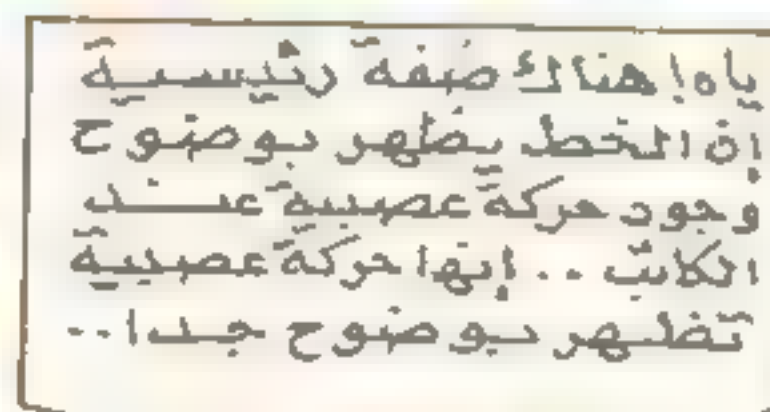 ياه! هناك صفة رئيسية
إن الخط يظهر بوضوح
وجود حركة عصبية عند
الكاتب .. إنها حركة عصبية
تظهر بوضوح جدا ..